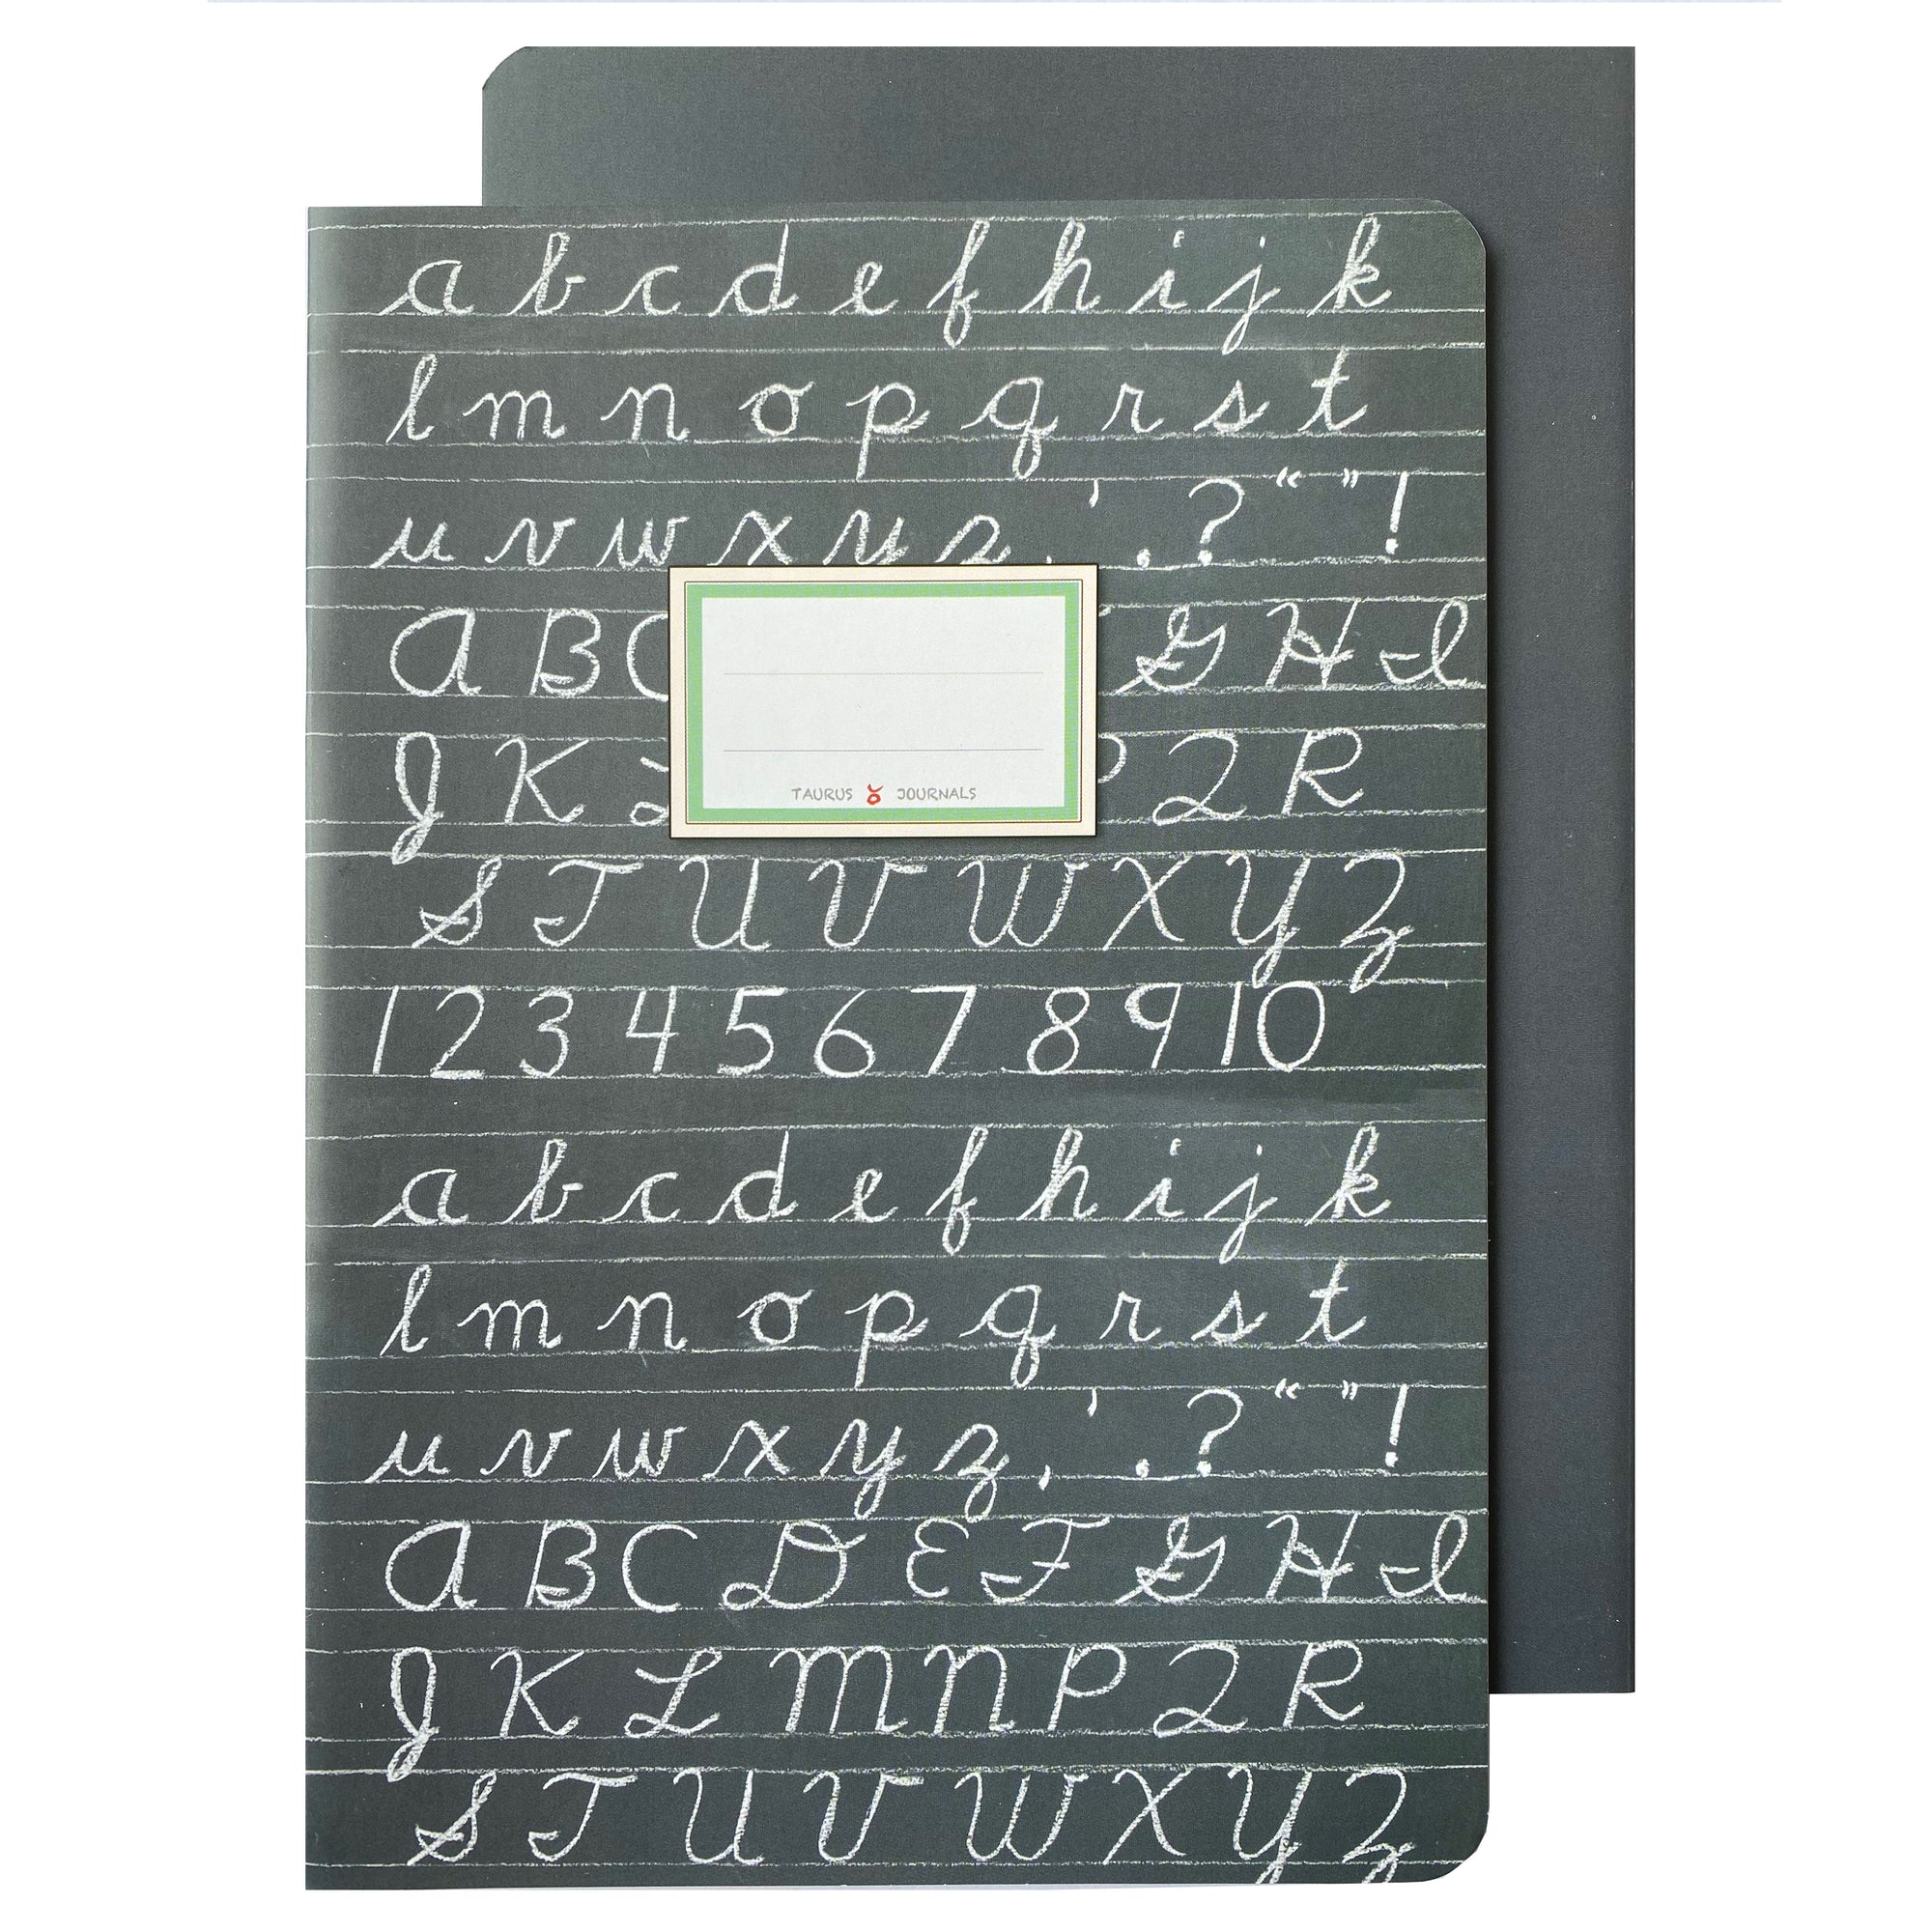 a b c d e f h i j k
l m n o p q r s t
u v w x y z , ' . ? “ ” !
A B C G H I
J K L P Q R
TAURUS JOURNALS
S T U V W X Y Z
1 2 3 4 5 6 7 8 9 10
a b c d e f h i j k
l m n o p q r s t
u v w x y z , ' . ? “ ” !
A B C D E F G H I
J K L M N P Q R
S T U V W X Y Z